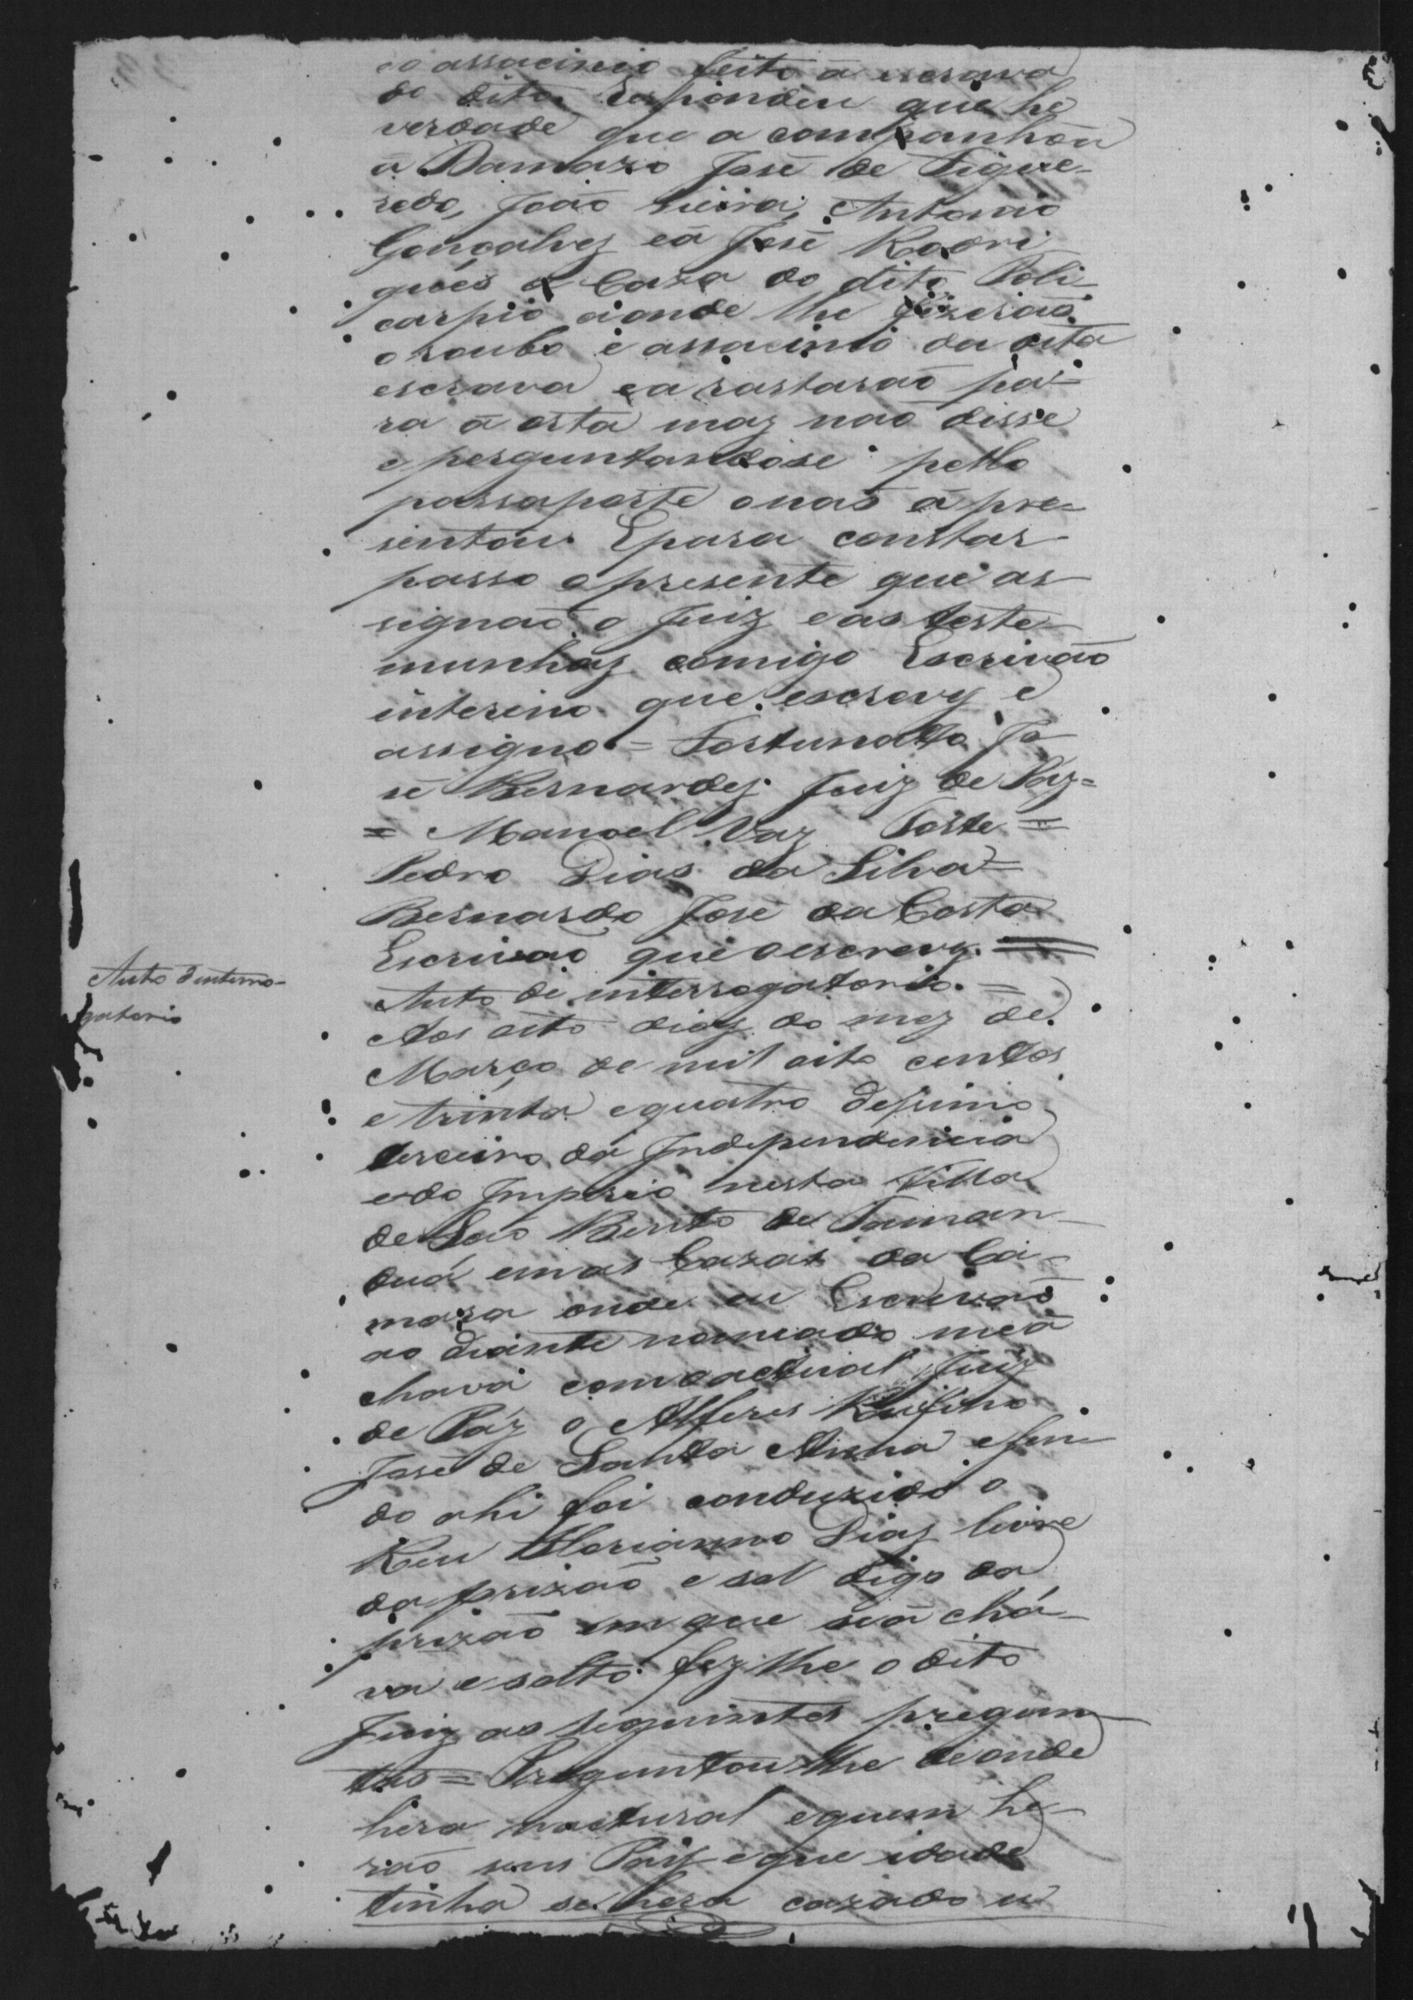 o assacinio feito a escrava
do dito. Respondeu que he
verdade que a companhou
a Damazo José de Figue-
redo, João Vieira, Antonio
Gonçalves eá José Rodri
gues a Caza do dito Poli
carpio aonde lhe fizerão
o roubo e assacinio da dita
escrava ea rastarão pa-
ra a outra maz não disse
e perguntandose pello
passaporte onão a pre-
sentou. Epara constar
passo o presente que as-
signão o Juiz eas teste-
munhas comigo Escrivão
interino que escrevy e
assigno = Fortunato Jo-
sé Bernardes Juiz de Paz=
= Manoel Vaz Torte =
Pedro Dias da Silva=
Bernardo José da Costa
Escrivão que oescrevy. =
Auto d'interro-
gatorio
Auto de interrogatorio. =
Aos oito dias do mez de
Março de mil oito centos
e trinta equatro desimo
terceiro da Independencia
edo Imperio nesta Villa
de São Bento de Taman-
duá em as Cazas da Ca-
mara onde eu Escrivão
ao diante nomeado me á
chava com oactual Juiz
de Paz o Alferes Rufino
José de Santa Anna esen
do ahi foi conduzido o
Reu Floriano Dias livre
da prizão e sol digo da
prizão emque seá chá-
va e solto fez lhe o dito
Juiz as seguintes pregun
tas = Preguntou lhe deonde
hera natural equem he-
rão seus Pais eque idade
tinha se hera cazado u